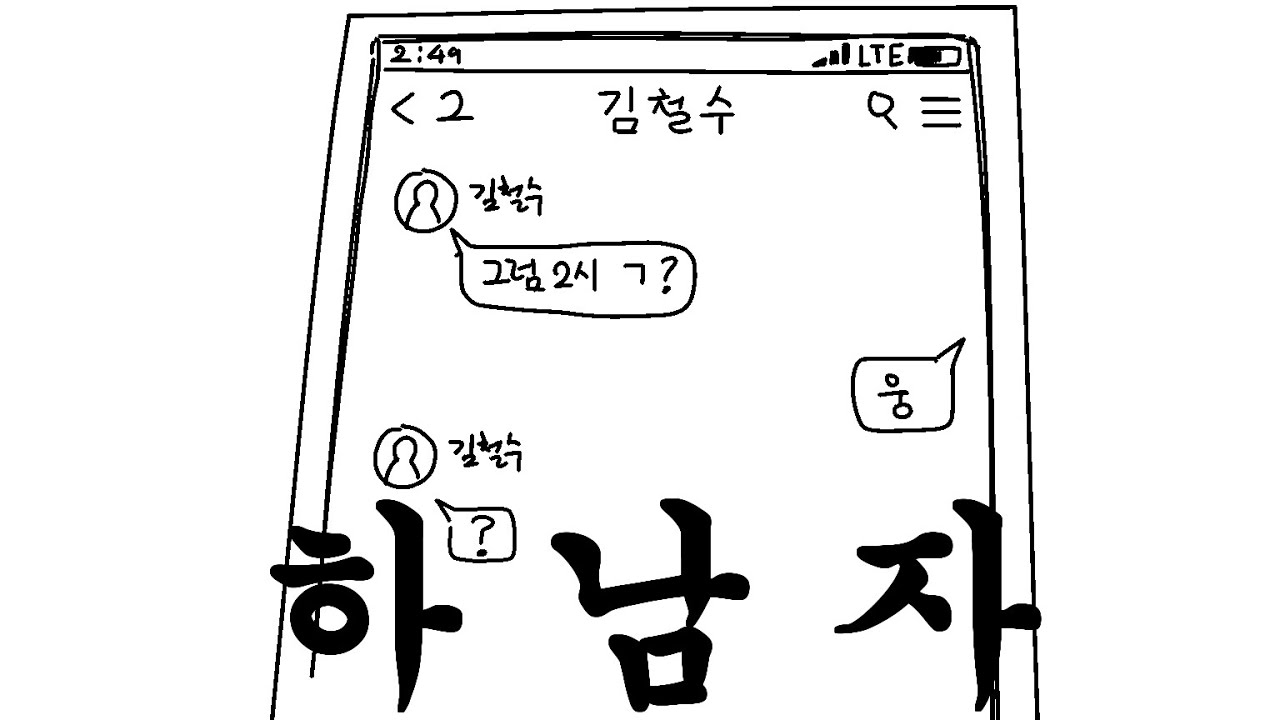 2:49 LTE
< 2 김철수
김철수
그럼 2시 ㄱ?
웅
김철수
?
하남자